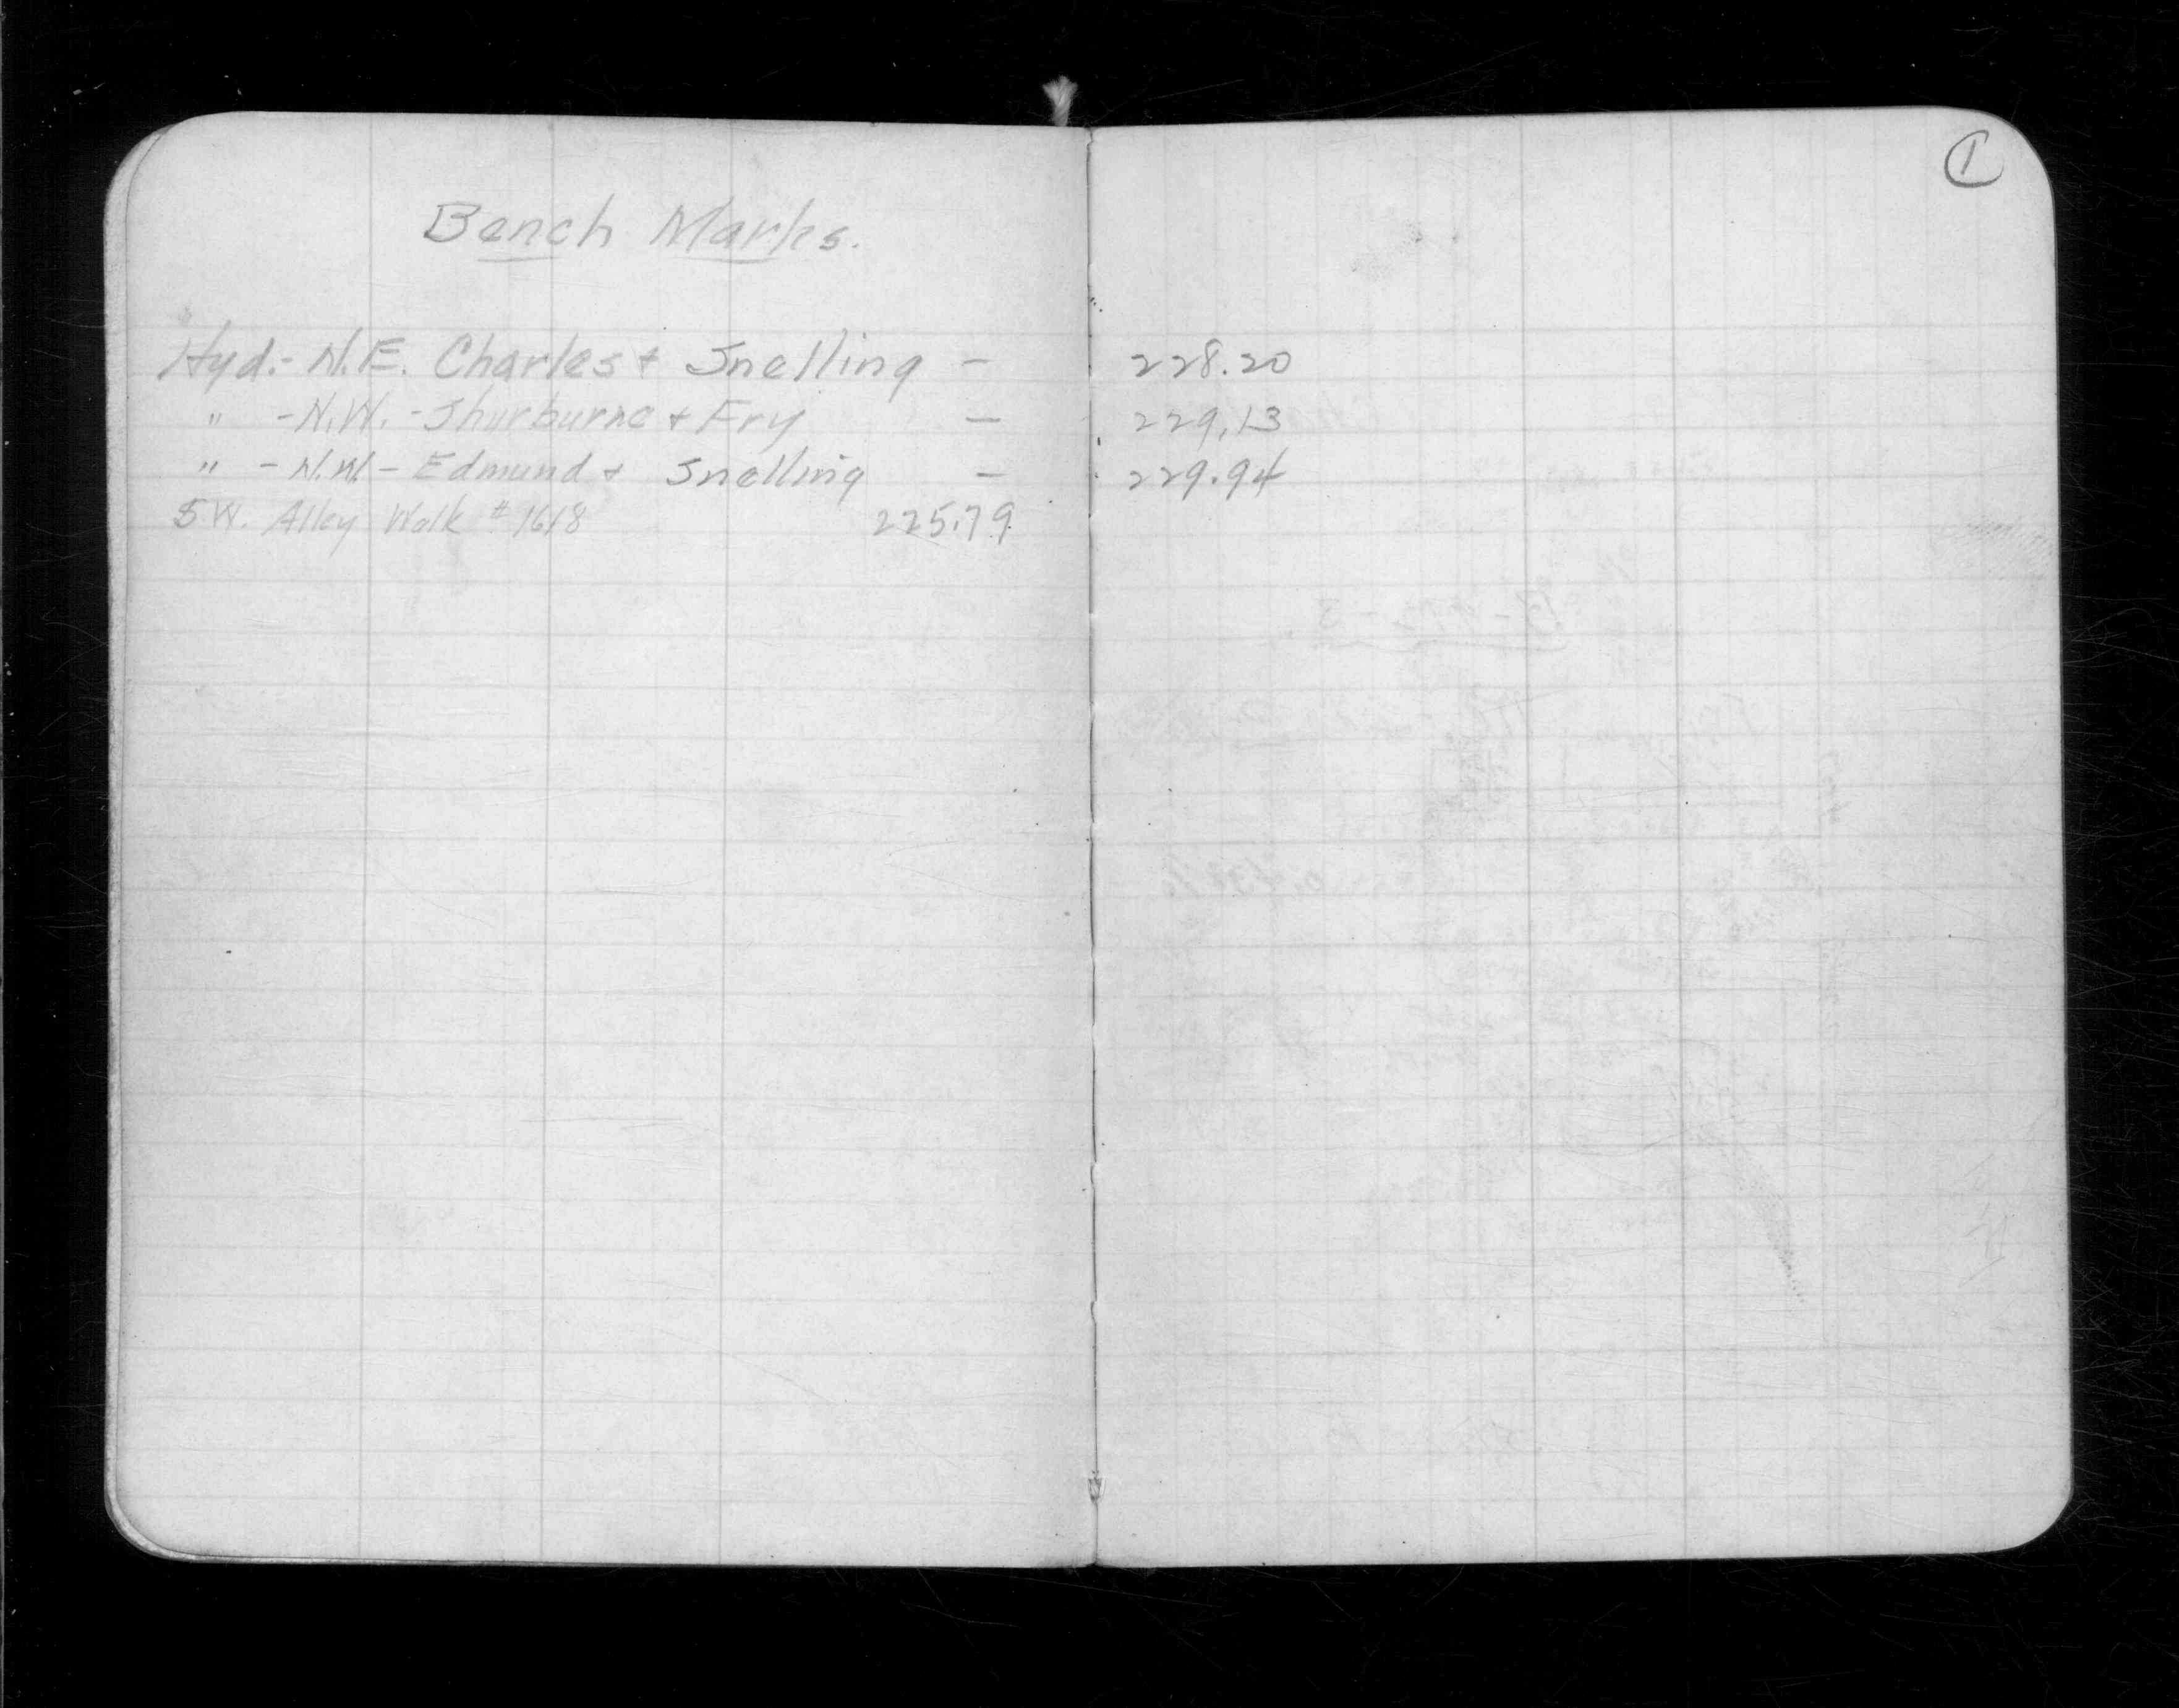 1
Bench Marks.
Hyd.- N.E. Charles + Snelling - 228.20
" - N.W. - Thurburne + Fry - 229.13
" - N.W. - Edmund + Snelling - 229.94
S.W. Alley Walk # 1618 225.79